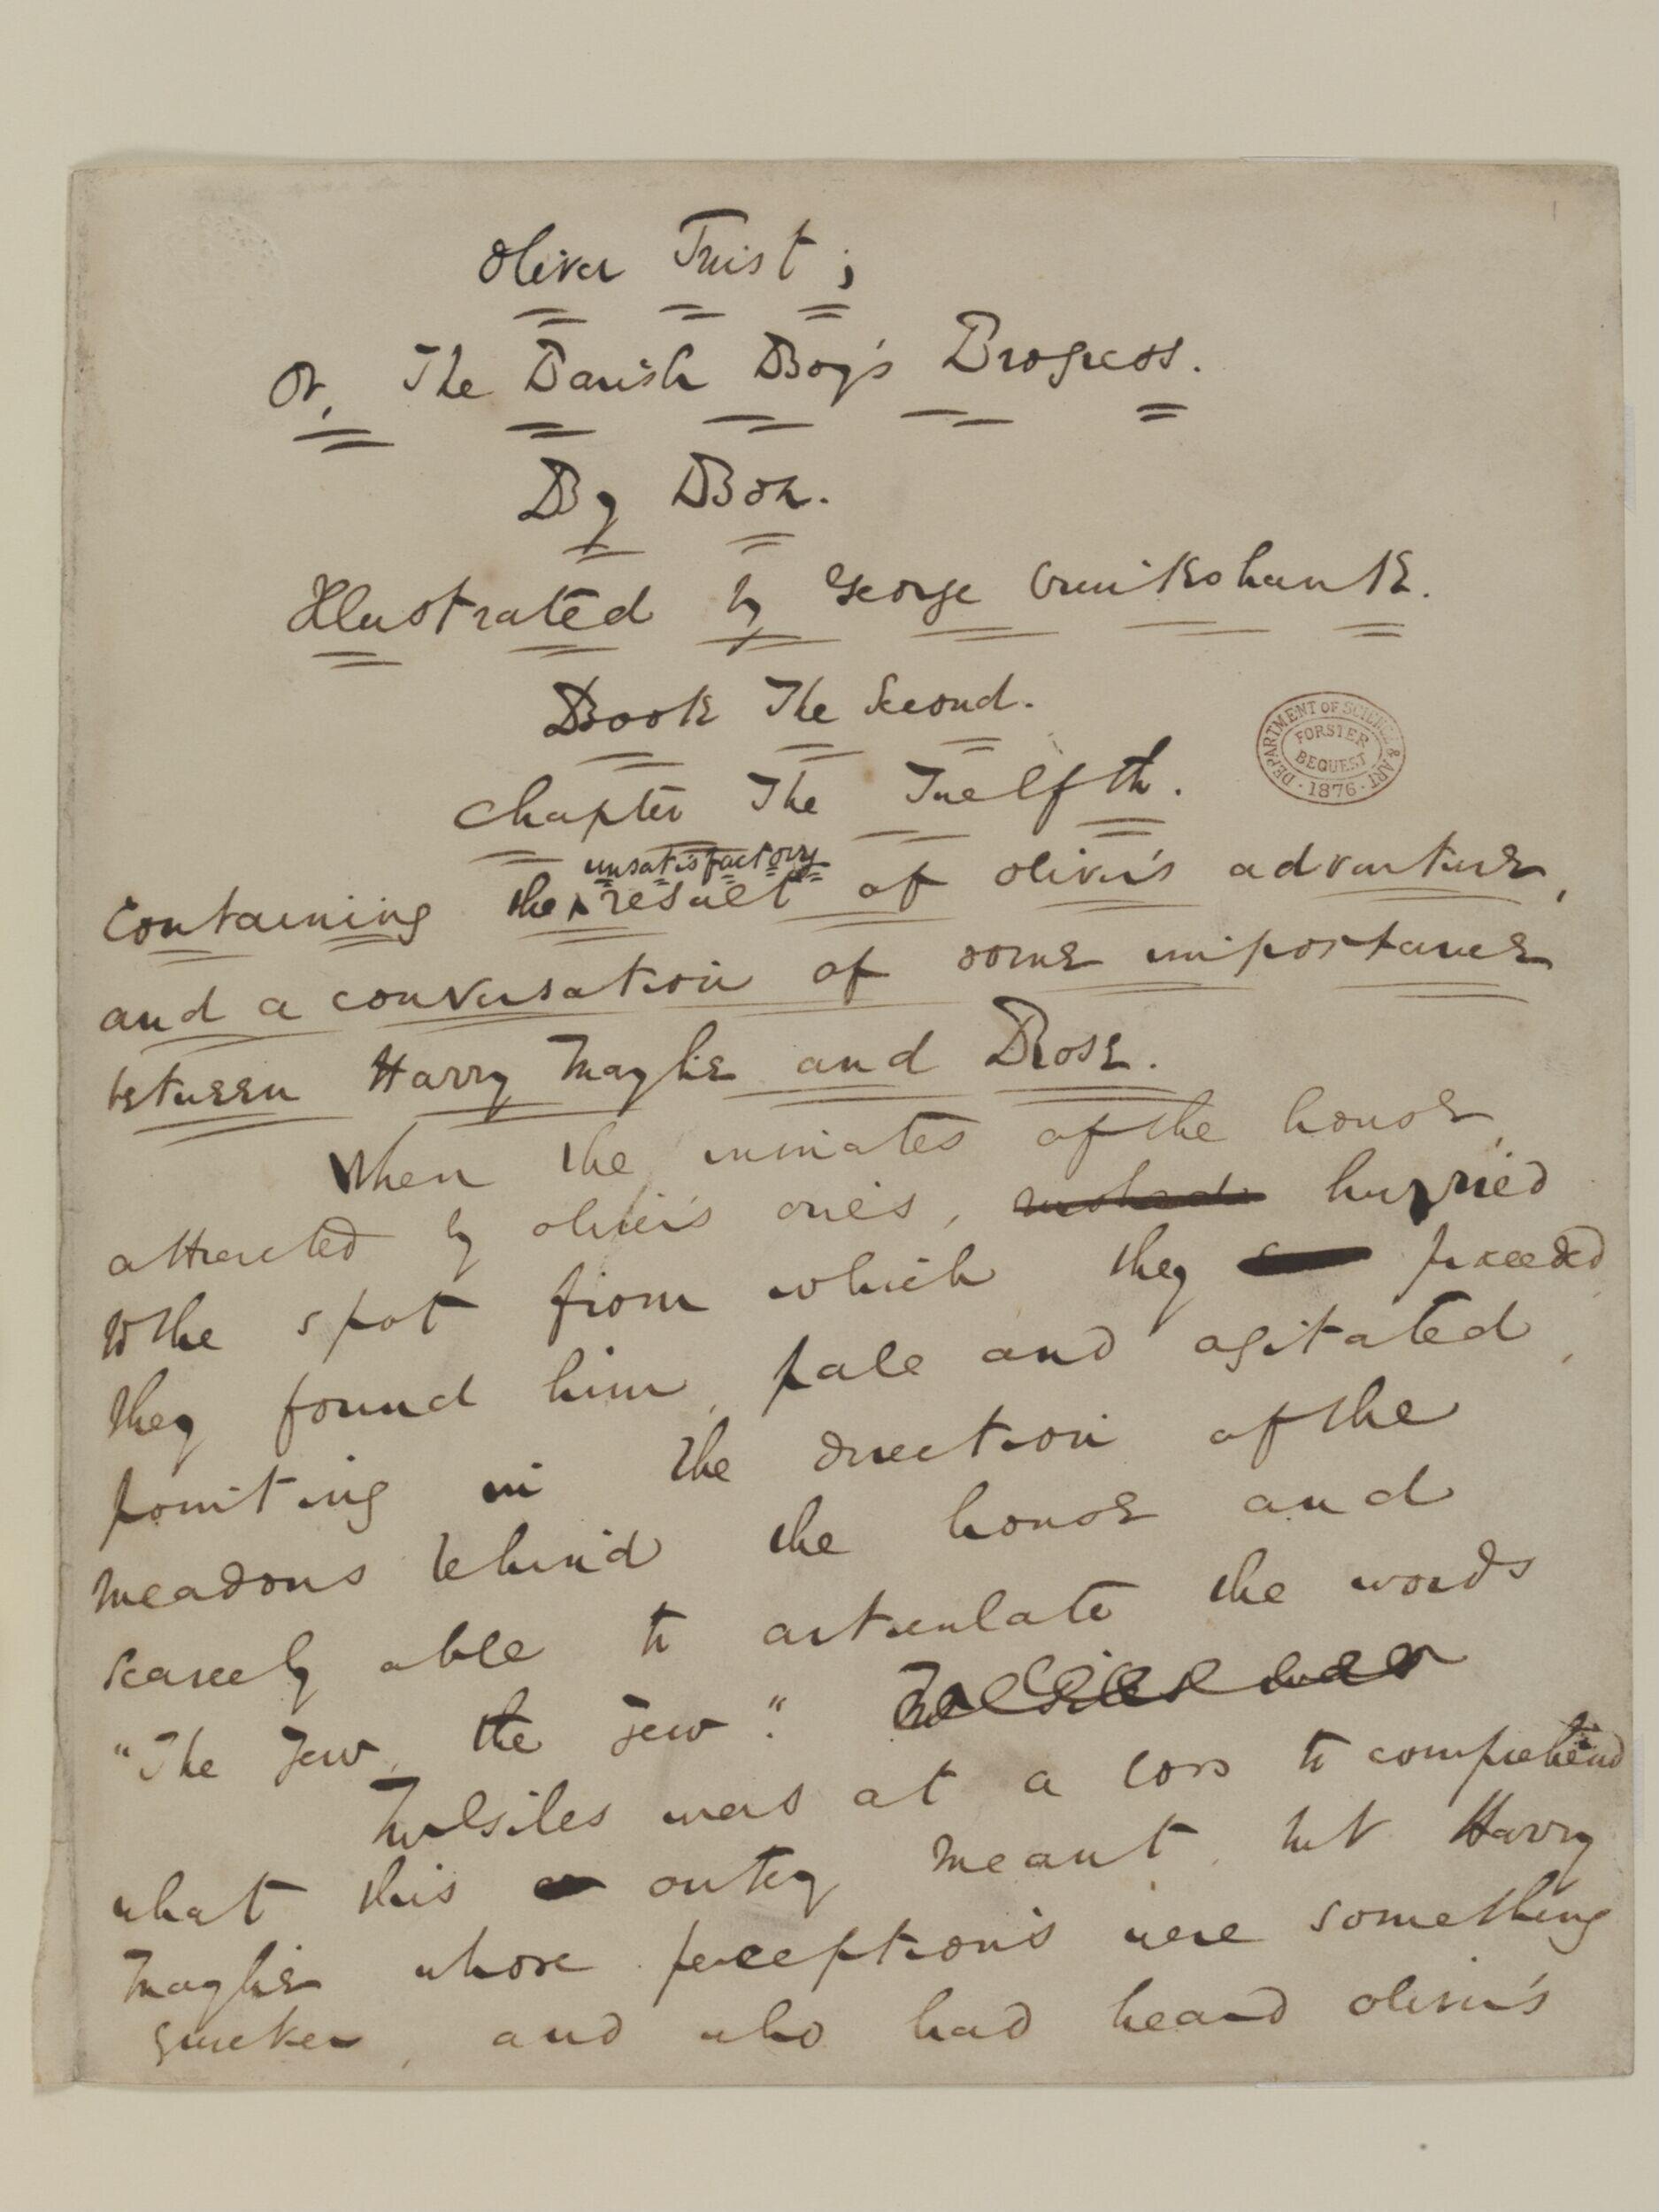 Oliver Twist;
Or, The Parish Boy's Progress.
By Boz.
Illustrated by George Cruikshank.
Book The Second.
DEPARTMENT OF SCIENCE & ART · 1876 ·
FORSTER
BEQUEST
Chapter The Twelfth.
unsatisfactory
Containing the result of Oliver's adventure,
and a conversation of some importance
between Harry Maylie and Rose.
When the inmates of the house,
attracted by Oliver's cries, hurried
to the spot from which they proceeded,
they found him, pale and agitated,
pointing in the direction of the
meadows behind the house and
scarcely able to articulate the words
"The Jew, the Jew".
Mr Giles was at a loss to comprehend
what this outcry meant, but Harry
Maylie whose perceptions were something
quicker, and who had heard Oliver's